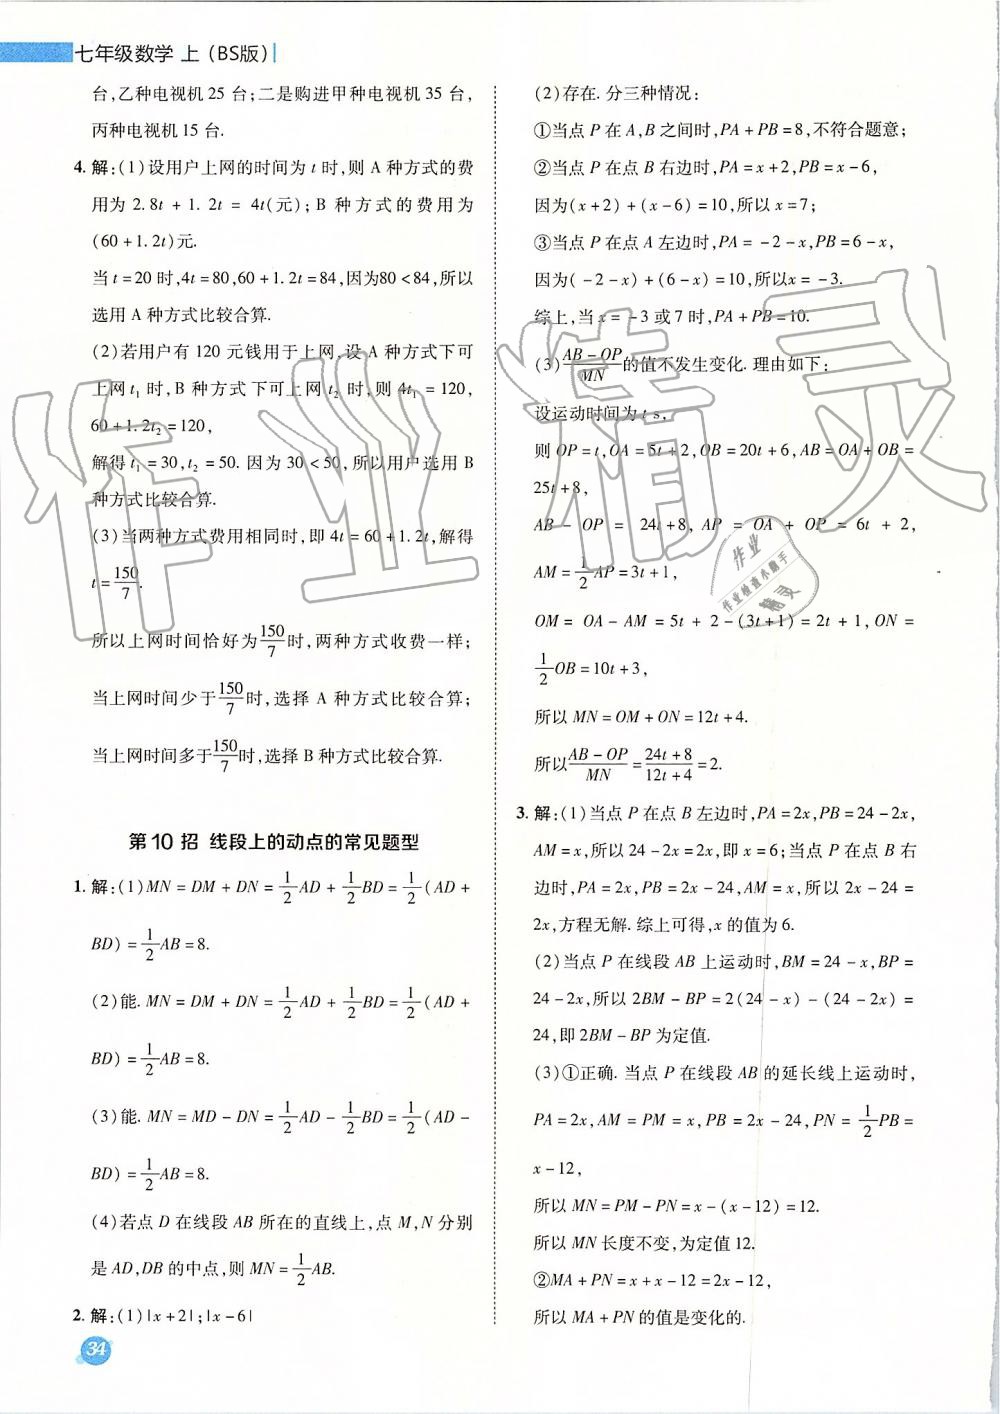 七年级数学 上(BS版)
台,乙种电视机25台;二是购进甲种电视机35台,
丙种电视机15台.
4. 解:(1)设用户上网的时间为 t 时,则 A 种方式的费
用为 2.8t + 1.2t = 4t(元);B 种方式的费用为
(60+1.2t)元.
当 t=20 时,4t=80,60+1.2t=84,因为80<84,所以
选用 A 种方式比较合算.
(2)若用户有 120 元钱用于上网,设 A 种方式下可
上网 t₁ 时,B 种方式下可上网 t₂ 时,则 4t₁=120,
60+1.2t₂=120,
解得 t₁=30,t₂=50. 因为 30<50,所以用户选用 B
种方式比较合算.
(3)当两种方式费用相同时,即 4t=60+1.2t,解得
t=150/7.
所以上网时间恰好为150/7时,两种方式收费一样;
当上网时间少于150/7时,选择 A 种方式比较合算;
当上网时间多于150/7时,选择 B 种方式比较合算.
第10招 线段上的动点的常见题型
1. 解:(1)MN=DM+DN=1/2AD+1/2BD=1/2(AD+
BD)=1/2AB=8.
(2)能. MN=DM+DN=1/2AD+1/2BD=1/2(AD+
BD)=1/2AB=8.
(3)能. MN=MD-DN=1/2AD-1/2BD=1/2(AD-
BD)=1/2AB=8.
(4)若点 D 在线段 AB 所在的直线上,点 M,N 分别
是 AD,DB 的中点,则 MN=1/2AB.
2. 解:(1)|x+2|;|x-6|
(2)存在. 分三种情况:
①当点 P 在 A,B 之间时,PA+PB=8,不符合题意;
②当点 P 在点 B 右边时,PA=x+2,PB=x-6,
因为(x+2)+(x-6)=10,所以 x=7;
③当点 P 在点 A 左边时,PA=-2-x,PB=6-x,
因为(-2-x)+(6-x)=10,所以x=-3.
综上,当 x=-3 或7 时,PA+PB=10.
(3)(AB-OP)/MN的值不发生变化. 理由如下:
设运动时间为 t s,
则 OP=t,OA=5t+2,OB=20t+6,AB=OA+OB=
25t+8,
AB-OP=24t+8,AP=OA+OP=6t+2,
AM=1/2AP=3t+1,
OM=OA-AM=5t+2-(3t+1)=2t+1,ON=
1/2OB=10t+3,
所以 MN=OM+ON=12t+4.
所以(AB-OP)/MN=(24t+8)/(12t+4)=2.
3. 解:(1)当点 P 在点 B 左边时,PA=2x,PB=24-2x,
AM=x,所以 24-2x=2x,即 x=6;当点 P 在点 B 右
边时,PA=2x,PB=2x-24,AM=x,所以 2x-24=
2x,方程无解. 综上可得,x 的值为 6.
(2)当点 P 在线段 AB 上运动时,BM=24-x,BP=
24-2x,所以 2BM-BP=2(24-x)-(24-2x)=
24,即 2BM-BP 为定值.
(3)①正确. 当点 P 在线段 AB 的延长线上运动时,
PA=2x,AM=PM=x,PB=2x-24,PN=1/2PB=
x-12,
所以 MN=PM-PN=x-(x-12)=12.
所以 MN 长度不变,为定值 12.
②MA+PN=x+x-12=2x-12,
所以 MA+PN 的值是变化的.
34
作业精灵
作业
作业检查小助手
精灵